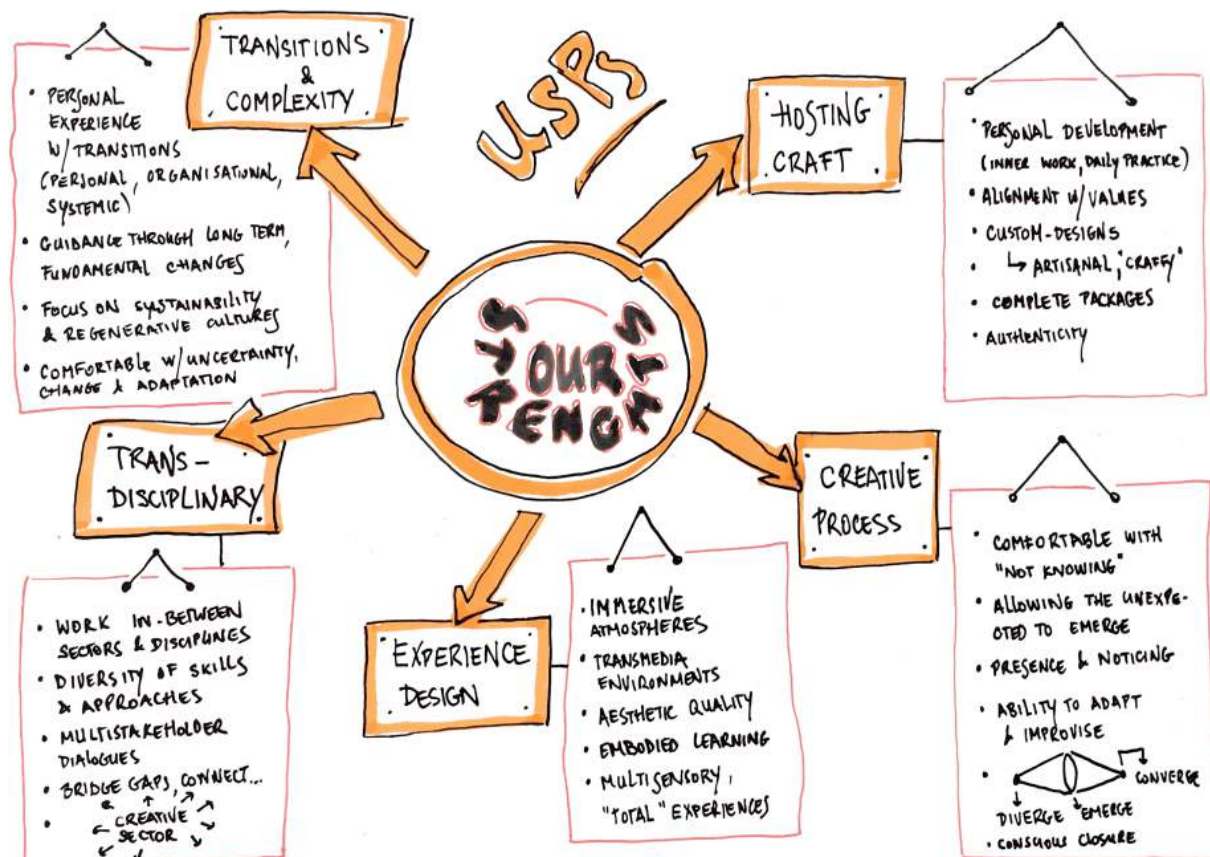 USPs
OUR
STRENGHTS
TRANSITIONS
&
COMPLEXITY
• PERSONAL
EXPERIENCE
W/TRANSITIONS
(PERSONAL, ORGANISATIONAL,
SYSTEMIC)
• GUIDANCE THROUGH LONG TERM,
FUNDAMENTAL CHANGES
• FOCUS ON SUSTAINABILITY
& REGENERATIVE CULTURES
• COMFORTABLE W/UNCERTAINTY,
CHANGE & ADAPTATION
HOSTING
CRAFT
• PERSONAL DEVELOPMENT
(INNER WORK, DAILY PRACTICE)
• ALIGNMENT W/VALUES
• CUSTOM-DESIGNS
• ↳ ARTISANAL, "CRAFTY"
• COMPLETE PACKAGES
• AUTHENTICITY
TRANS-
DISCIPLINARY
• WORK IN-BETWEEN
SECTORS & DISCIPLINES
• DIVERSITY OF SKILLS
& APPROACHES
• MULTISTAKEHOLDER
DIALOGUES
• BRIDGE GAPS, CONNECT...
• CREATIVE
SECTOR
EXPERIENCE
DESIGN
• IMMERSIVE
ATMOSPHERES
• TRANSMEDIA
ENVIRONMENTS
• AESTHETIC QUALITY
• EMBODIED LEARNING
• MULTISENSORY,
"TOTAL" EXPERIENCES
CREATIVE
PROCESS
• COMFORTABLE WITH
"NOT KNOWING"
• ALLOWING THE UNEXPE-
CTED TO EMERGE
• PRESENCE & NOTICING
• ABILITY TO ADAPT
& IMPROVISE
• CONVERGE
DIVERGE EMERGE
• CONSCIOUS CLOSURE